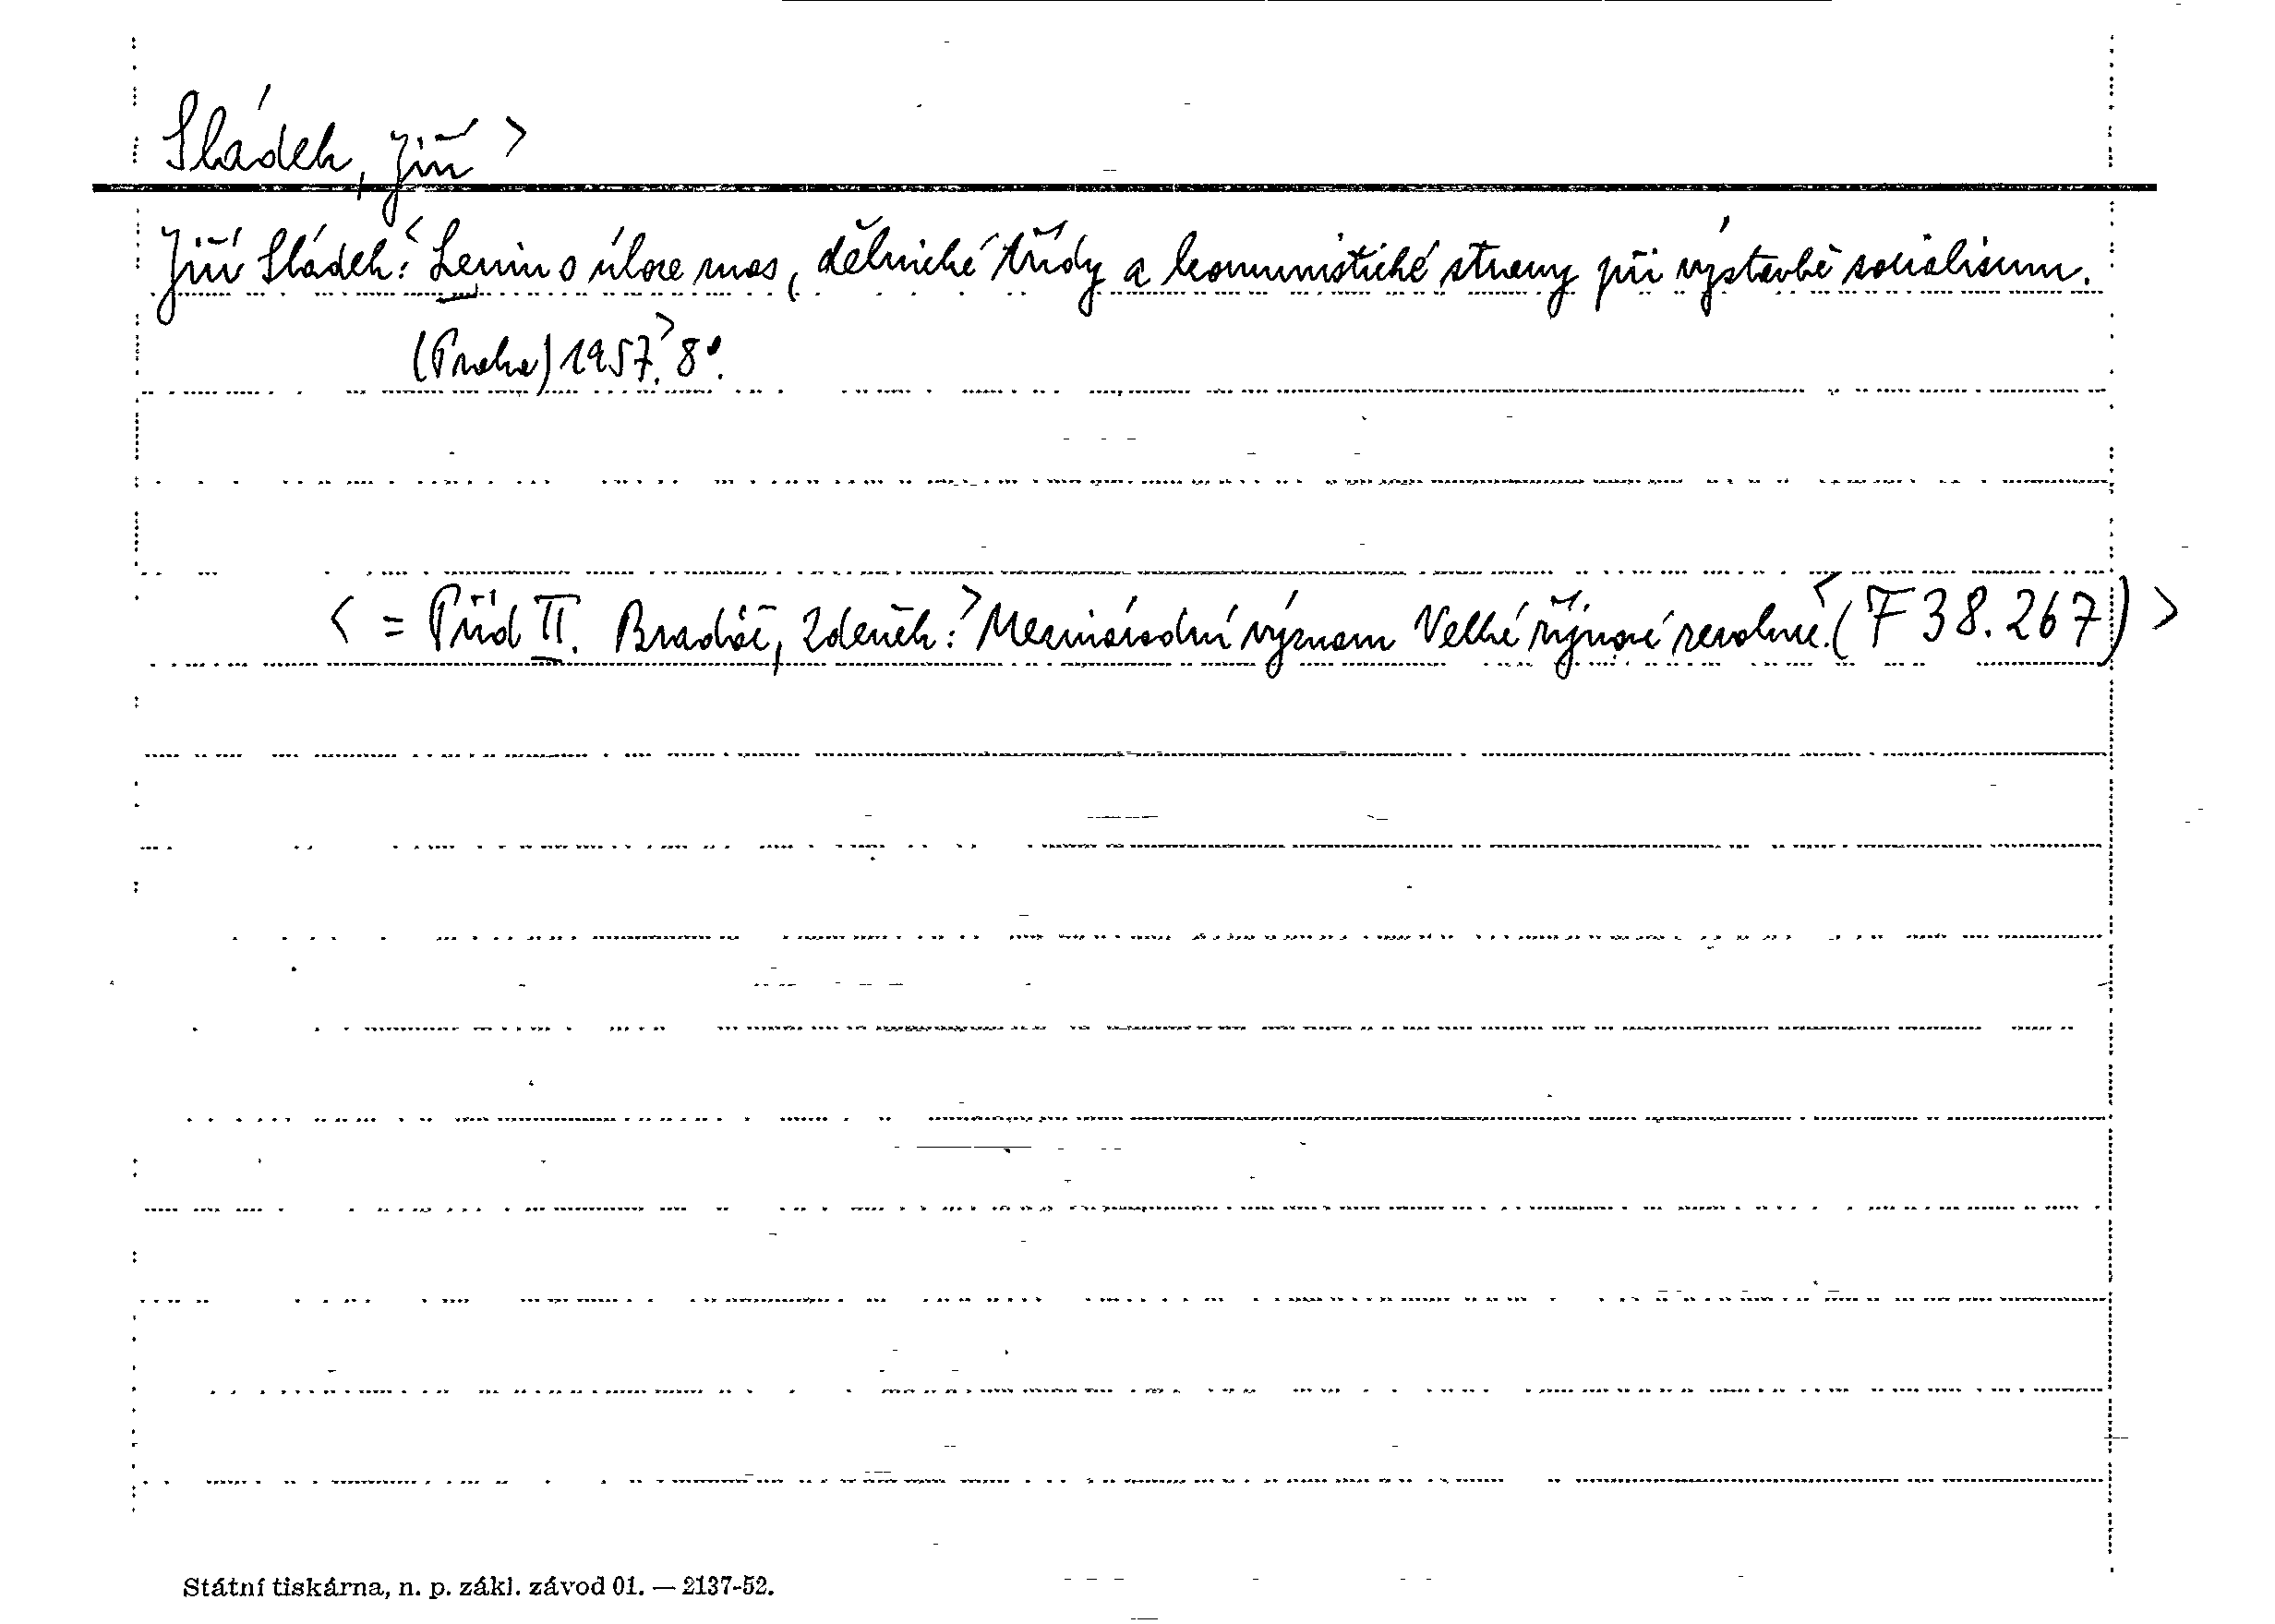 Sládek, Jiří >
Jiří Sládek: < Lenin o úloze mas, dělnické třídy a komunistické strany při výstavbě socialismu.
(Praha) 1957. > 8°.
< = Přid II. Bradáč, Zdeněk: > Mezinárodní význam Velké říjnové revoluce. < (F 38.267) >
Státní tiskárna, n. p. zákl. závod 01. — 2137-52.